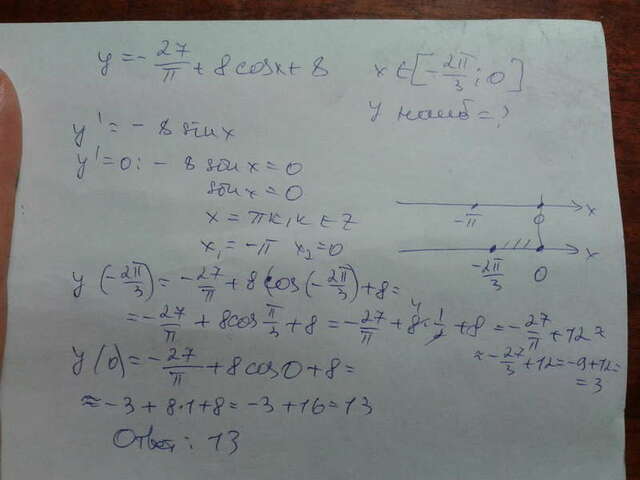 y = -27/π + 8cosx + 8 x ∈ [-2π/3; 0]
y наиб = ?
y' = -8 sinx
y' = 0: -8 sinx = 0
sinx = 0
x = πk, k ∈ Z
x₁ = -π x₂ = 0
-π 0 x
-2π/3 0 x
y(-2π/3) = -27/π + 8cos(-2π/3) + 8 =
= -27/π + 8cos π/3 + 8 = -27/π + 8·1/2 + 8 = -27/π + 12 ≈
≈ -27/3 + 12 = -9 + 12 =
= 3
y(0) = -27/π + 8cos0 + 8 =
≈ -3 + 8·1 + 8 = -3 + 16 = 13
Ответ: 13